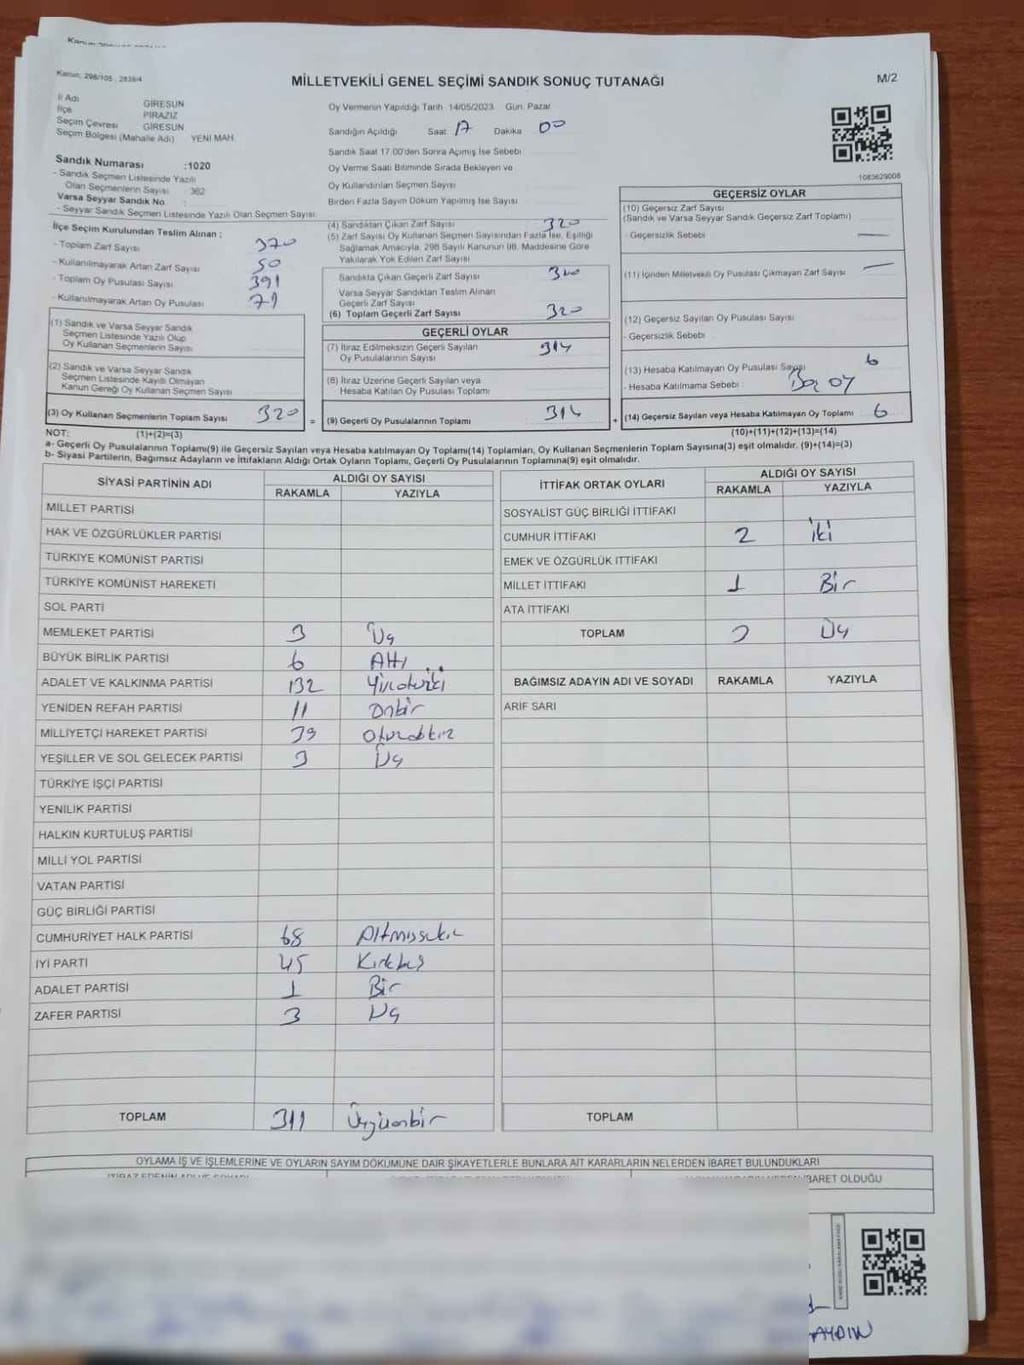 Kanun: 298/105, 2839/4
MİLLETVEKİLİ GENEL SEÇİMİ SANDIK SONUÇ TUTANAĞI
M/2
İl Adı GİRESUN
İlçe PİRAZİZ
Seçim Çevresi GİRESUN
Seçim Bölgesi (Mahalle Adı) YENİ MAH.
Oy Vermenin Yapıldığı Tarih 14/05/2023 Gün. Pazar
Sandığın Açıldığı Saat 17 Dakika 00
Sandık Saat 17.00'den Sonra Açımış İse Sebebi
Oy Verme Saati Bitiminde Sırada Bekleyen ve
Oy Kullandırılan Seçmen Sayısı
Birden Fazla Sayım Döküm Yapılmış İse Sayısı
1083629008
Sandık Numarası :1020
- Sandık Seçmen Listesinde Yazılı
Olan Seçmenlerin Sayısı : 362
Varsa Seyyar Sandık No :
- Seyyar Sandık Seçmen Listesinde Yazılı Olan Seçmen Sayısı:
İlçe Seçim Kurulundan Teslim Alınan :
- Toplam Zarf Sayısı 370
- Kullanılmayarak Artan Zarf Sayısı 50
- Toplam Oy Pusulası Sayısı 391
- Kullanılmayarak Artan Oy Pusulası 71
(1) Sandık ve Varsa Seyyar Sandık
Seçmen Listesinde Yazılı Olup
Oy Kullanan Seçmenlerin Sayısı
(2) Sandık ve Varsa Seyyar Sandık
Seçmen Listesinde Kayıtlı Olmayan
Kanun Gereği Oy Kullanan Seçmen Sayısı
(3) Oy Kullanan Seçmenlerin Toplam Sayısı 320
(4) Sandıktan Çıkan Zarf Sayısı 320
(5) Zarf Sayısı Oy Kullanan Seçmen Sayısından Fazla İse, Eşitliği
Sağlamak Amacıyla, 298 Sayılı Kanunun 98. Maddesine Göre
Yakılarak Yok Edilen Zarf Sayısı
Sandıkta Çıkan Geçerli Zarf Sayısı 320
Varsa Seyyar Sandıktan Teslim Alınan
Geçerli Zarf Sayısı
(6) Toplam Geçerli Zarf Sayısı 320
GEÇERLİ OYLAR
(7) İtiraz Edilmeksizin Geçerli Sayılan
Oy Pusulalarının Sayısı 314
(8) İtiraz Üzerine Geçerli Sayılan veya
Hesaba Katılan Oy Pusulası Toplamı
= (9) Geçerli Oy Pusulalarının Toplamı 314
GEÇERSİZ OYLAR
(10) Geçersiz Zarf Sayısı
(Sandık ve Varsa Seyyar Sandık Geçersiz Zarf Toplamı)
- Geçersizlik Sebebi —
(11) İçinden Milletvekili Oy Pusulası Çıkmayan Zarf Sayısı —
(12) Geçersiz Sayılan Oy Pusulası Sayısı
- Geçersizlik Sebebi
(13) Hesaba Katılmayan Oy Pusulası Sayısı 6
- Hesaba Katılmama Sebebi : Boş oy
+ (14) Geçersiz Sayılan veya Hesaba Katılmayan Oy Toplamı 6
NOT: (1)+(2)=(3) (10)+(11)+(12)+(13)=(14)
a- Geçerli Oy Pusulalarının Toplamı(9) ile Geçersiz Sayılan veya Hesaba katılmayan Oy Toplamı(14) Toplamları, Oy Kullanan Seçmenlerin Toplam Sayısına(3) eşit olmalıdır. (9)+(14)=(3)
b- Siyasi Partilerin, Bağımsız Adayların ve İttifakların Aldığı Ortak Oyların Toplamı, Geçerli Oy Pusulalarının Toplamına(9) eşit olmalıdır.
SİYASİ PARTİNİN ADI ALDIĞI OY SAYISI
RAKAMLA YAZIYLA
MİLLET PARTİSİ
HAK VE ÖZGÜRLÜKLER PARTİSİ
TÜRKİYE KOMÜNİST PARTİSİ
TÜRKİYE KOMÜNİST HAREKETİ
SOL PARTİ
MEMLEKET PARTİSİ 3 Üç
BÜYÜK BİRLİK PARTİSİ 6 Altı
ADALET VE KALKINMA PARTİSİ 132 Yüzotuziki
YENİDEN REFAH PARTİSİ 11 Onbir
MİLLİYETÇİ HAREKET PARTİSİ 39 Otuzdokuz
YEŞİLLER VE SOL GELECEK PARTİSİ 3 Üç
TÜRKİYE İŞÇİ PARTİSİ
YENİLİK PARTİSİ
HALKIN KURTULUŞ PARTİSİ
MİLLİ YOL PARTİSİ
VATAN PARTİSİ
GÜÇ BİRLİĞİ PARTİSİ
CUMHURİYET HALK PARTİSİ 68 Altmışsekiz
İYİ PARTİ 45 Kırkbeş
ADALET PARTİSİ 1 Bir
ZAFER PARTİSİ 3 Üç
TOPLAM 311 Üçyüzonbir
İTTİFAK ORTAK OYLARI ALDIĞI OY SAYISI
RAKAMLA YAZIYLA
SOSYALİST GÜÇ BİRLİĞİ İTTİFAKI
CUMHUR İTTİFAKI 2 İki
EMEK VE ÖZGÜRLÜK İTTİFAKI
MİLLET İTTİFAKI 1 Bir
ATA İTTİFAKI
TOPLAM 3 Üç
BAĞIMSIZ ADAYIN ADI VE SOYADI RAKAMLA YAZIYLA
ARİF SARI
TOPLAM
OYLAMA İŞ VE İŞLEMLERİNE VE OYLARIN SAYIM DÖKÜMÜNE DAİR ŞİKAYETLERLE BUNLARA AİT KARARLARIN NELERDEN İBARET BULUNDUKLARI
İTİRAZ EDENİN ADI VE SOYADI
İBARET OLDUĞU
AYDIN